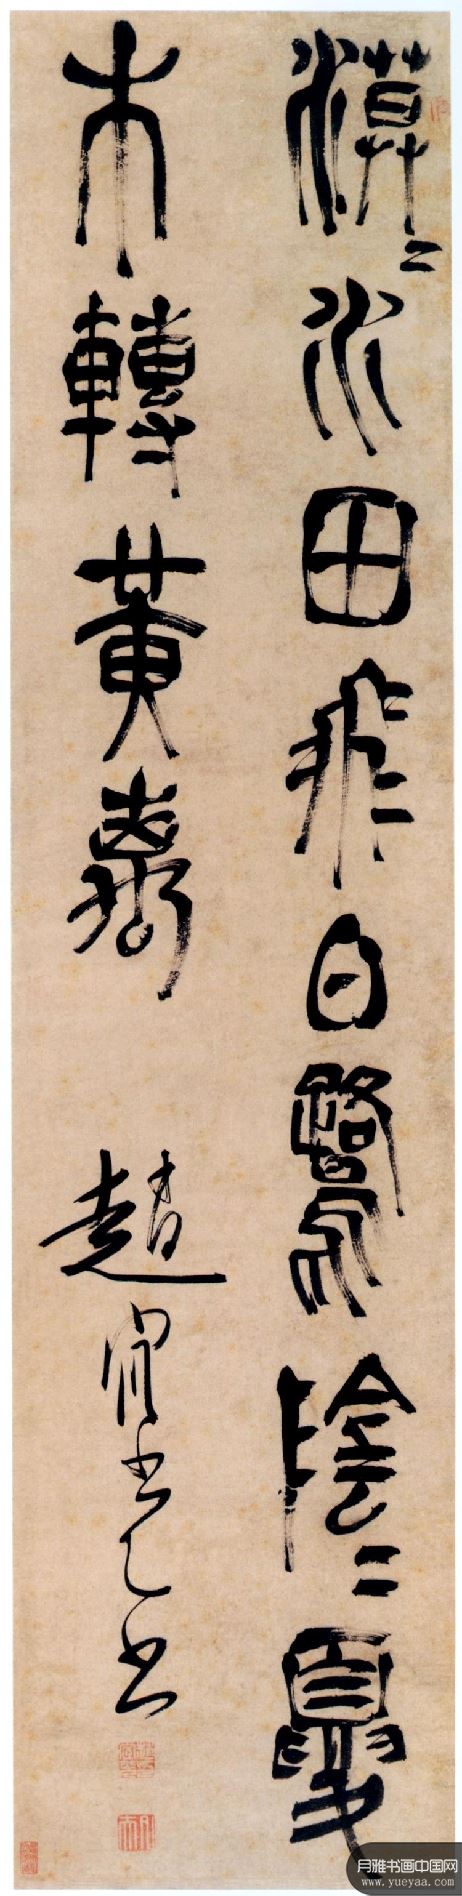 漠〻水田飛白鷺陰〻夏
木轉黃鸝 趙宧光書
月雅书画中国网
www.yueyaa.com